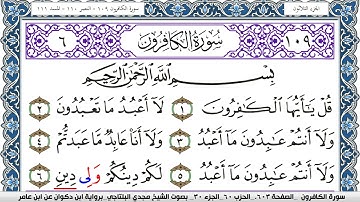 الجزء الثلاثون
سورة الكافرون ١٠٩ - النصر ١١٠ - المسد ١١١
١٠٩ سُورَةُ الْكَافِرُونَ ٦
بِسْمِ اللَّهِ الرَّحْمَٰنِ الرَّحِيمِ
قُلْ يَٰٓأَيُّهَا الْكَٰفِرُونَ ١ لَآ أَعْبُدُ مَا تَعْبُدُونَ ٢
وَلَآ أَنتُمْ عَٰبِدُونَ مَآ أَعْبُدُ ٣ وَلَآ أَنَا۠ عَابِدٌ مَّا عَبَدتُّمْ ٤
وَلَآ أَنتُمْ عَٰبِدُونَ مَآ أَعْبُدُ ٥ لَكُمْ دِينُكُمْ وَلِى دِينِ ٦
سورة الكافرون _ الصفحة ٦٠٣ _ الحزب ٦٠ _ الجزء ٣٠ _ بصوت الشيخ مجدي البلتاجي _ برواية ابن ذكوان عن ابن عامر